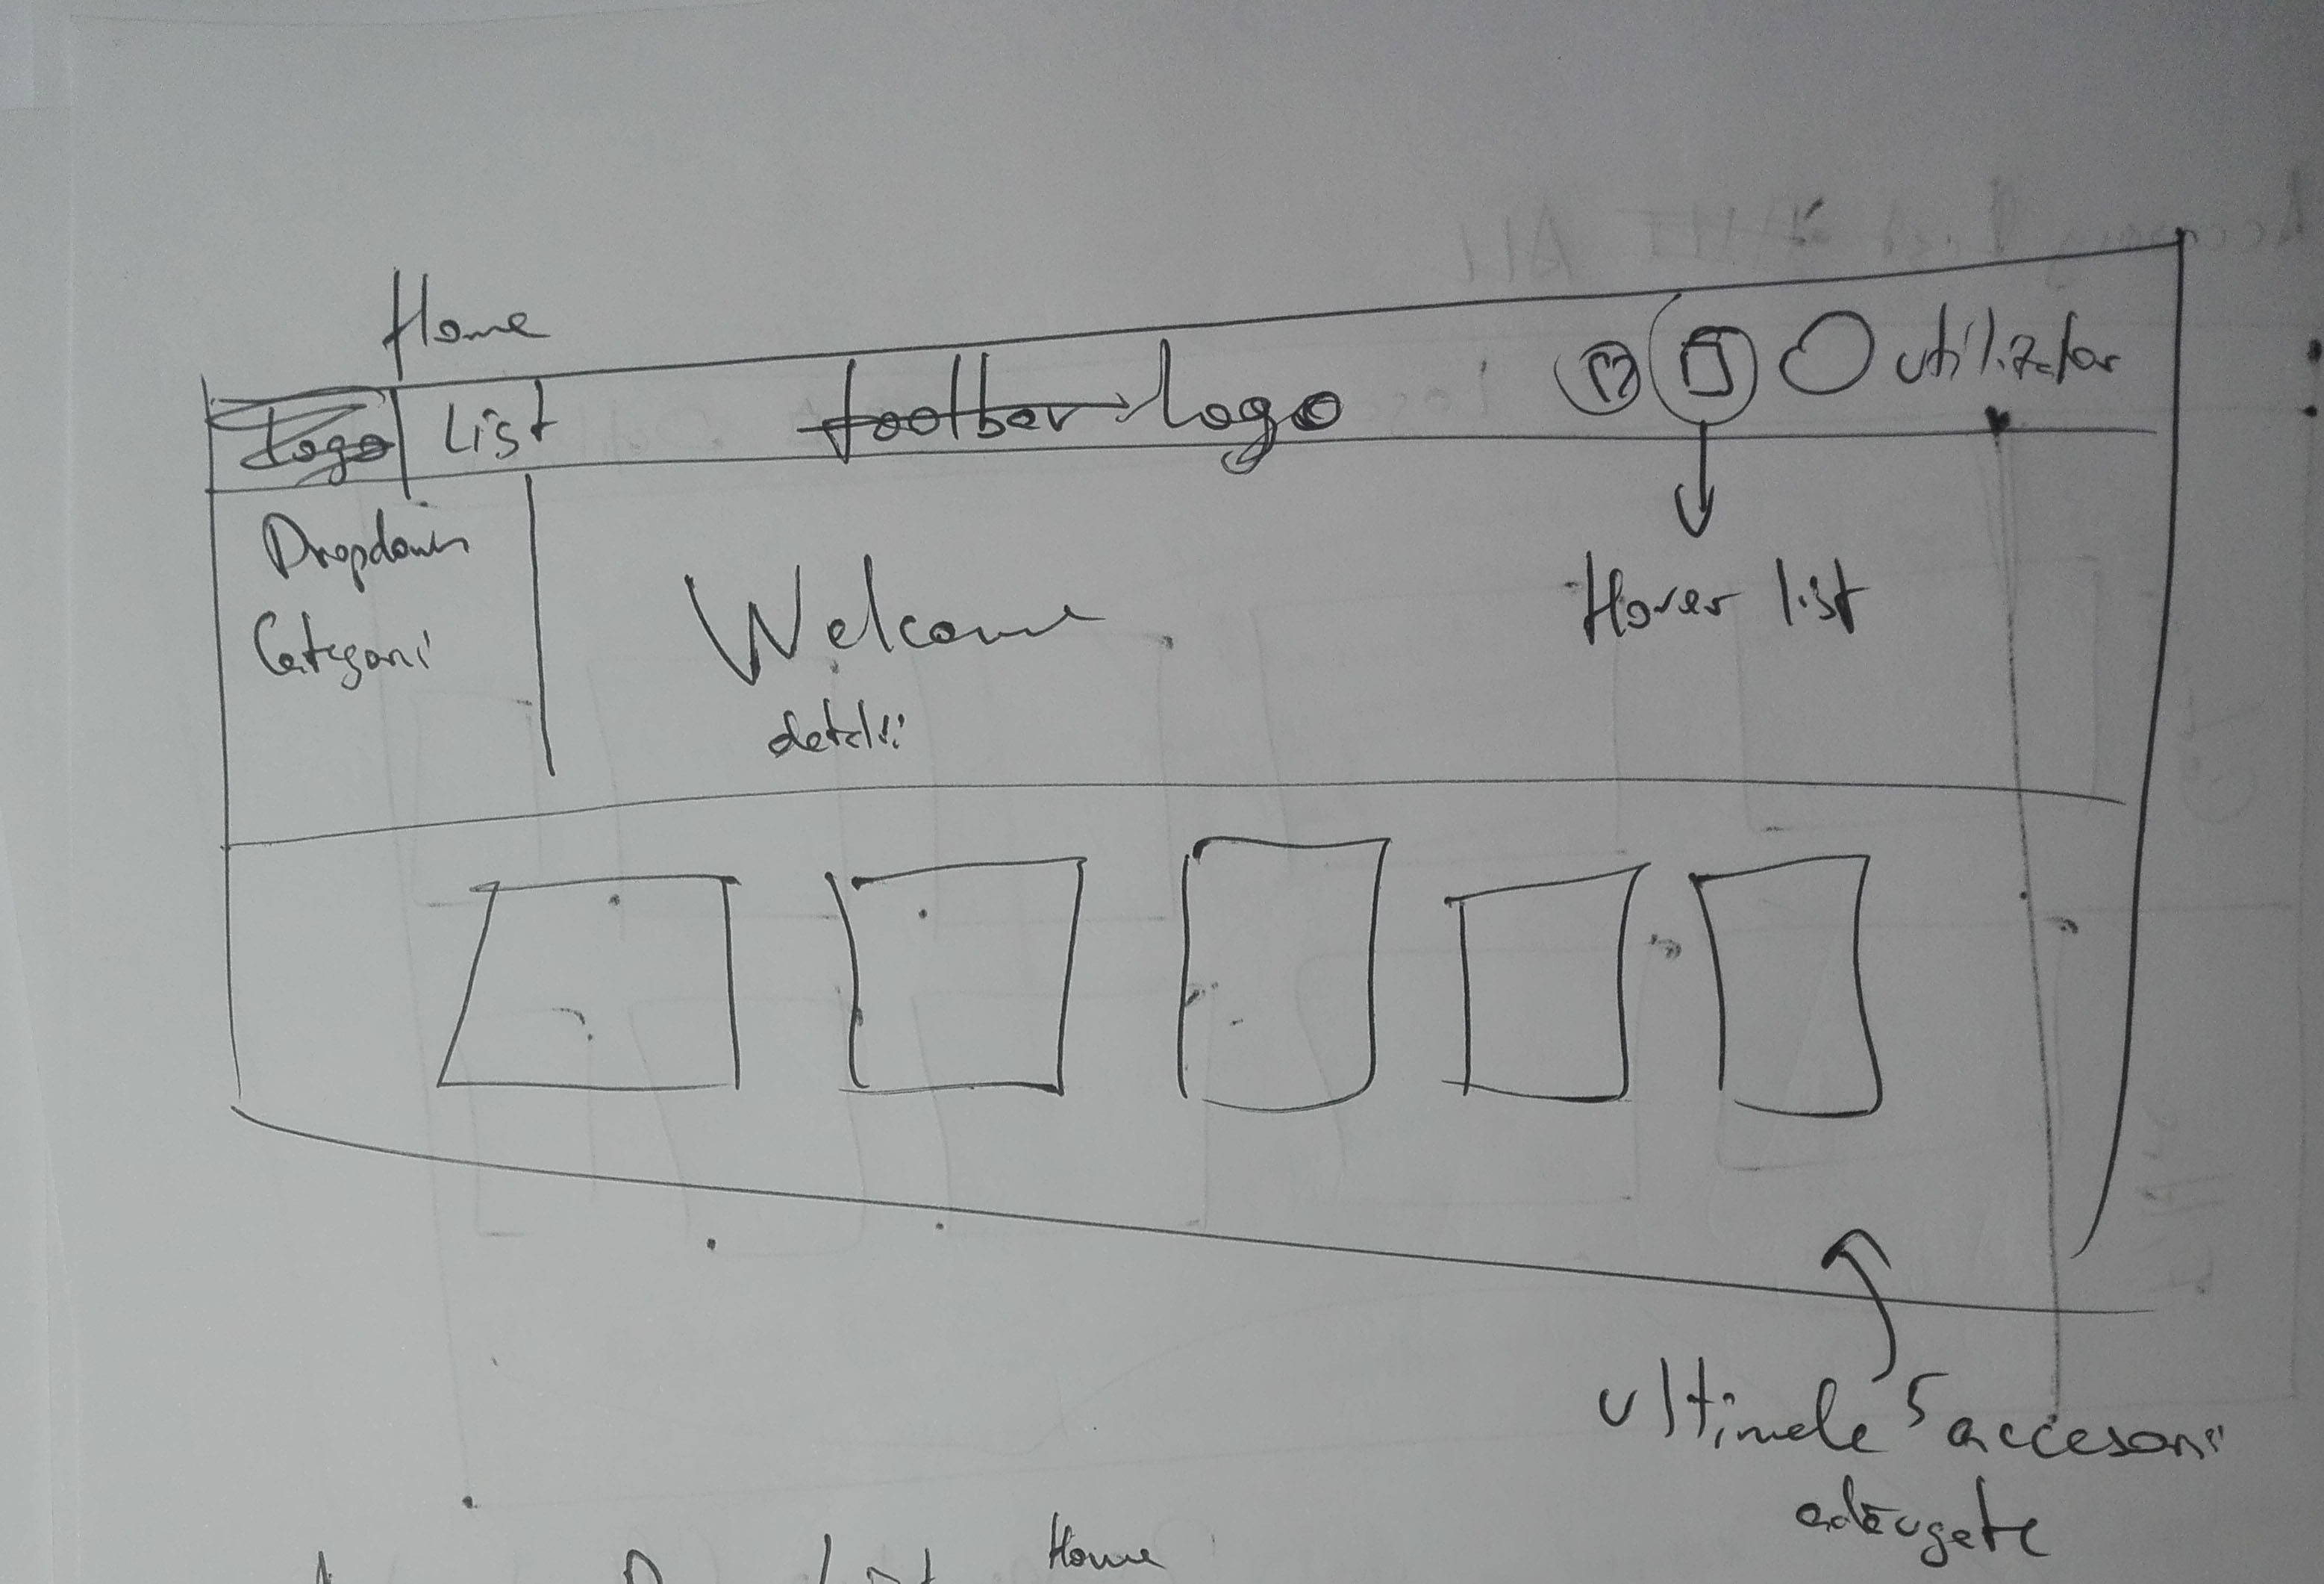 Home
Logo List toolbar Logo utilizator
Dropdown
Categorii
Welcome
detalii
Hover list
ultimele 5 accesorii
adăugate
List Home